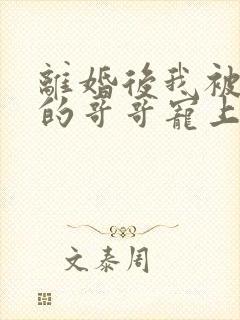 離婚後我被
的哥哥寵上
文泰周